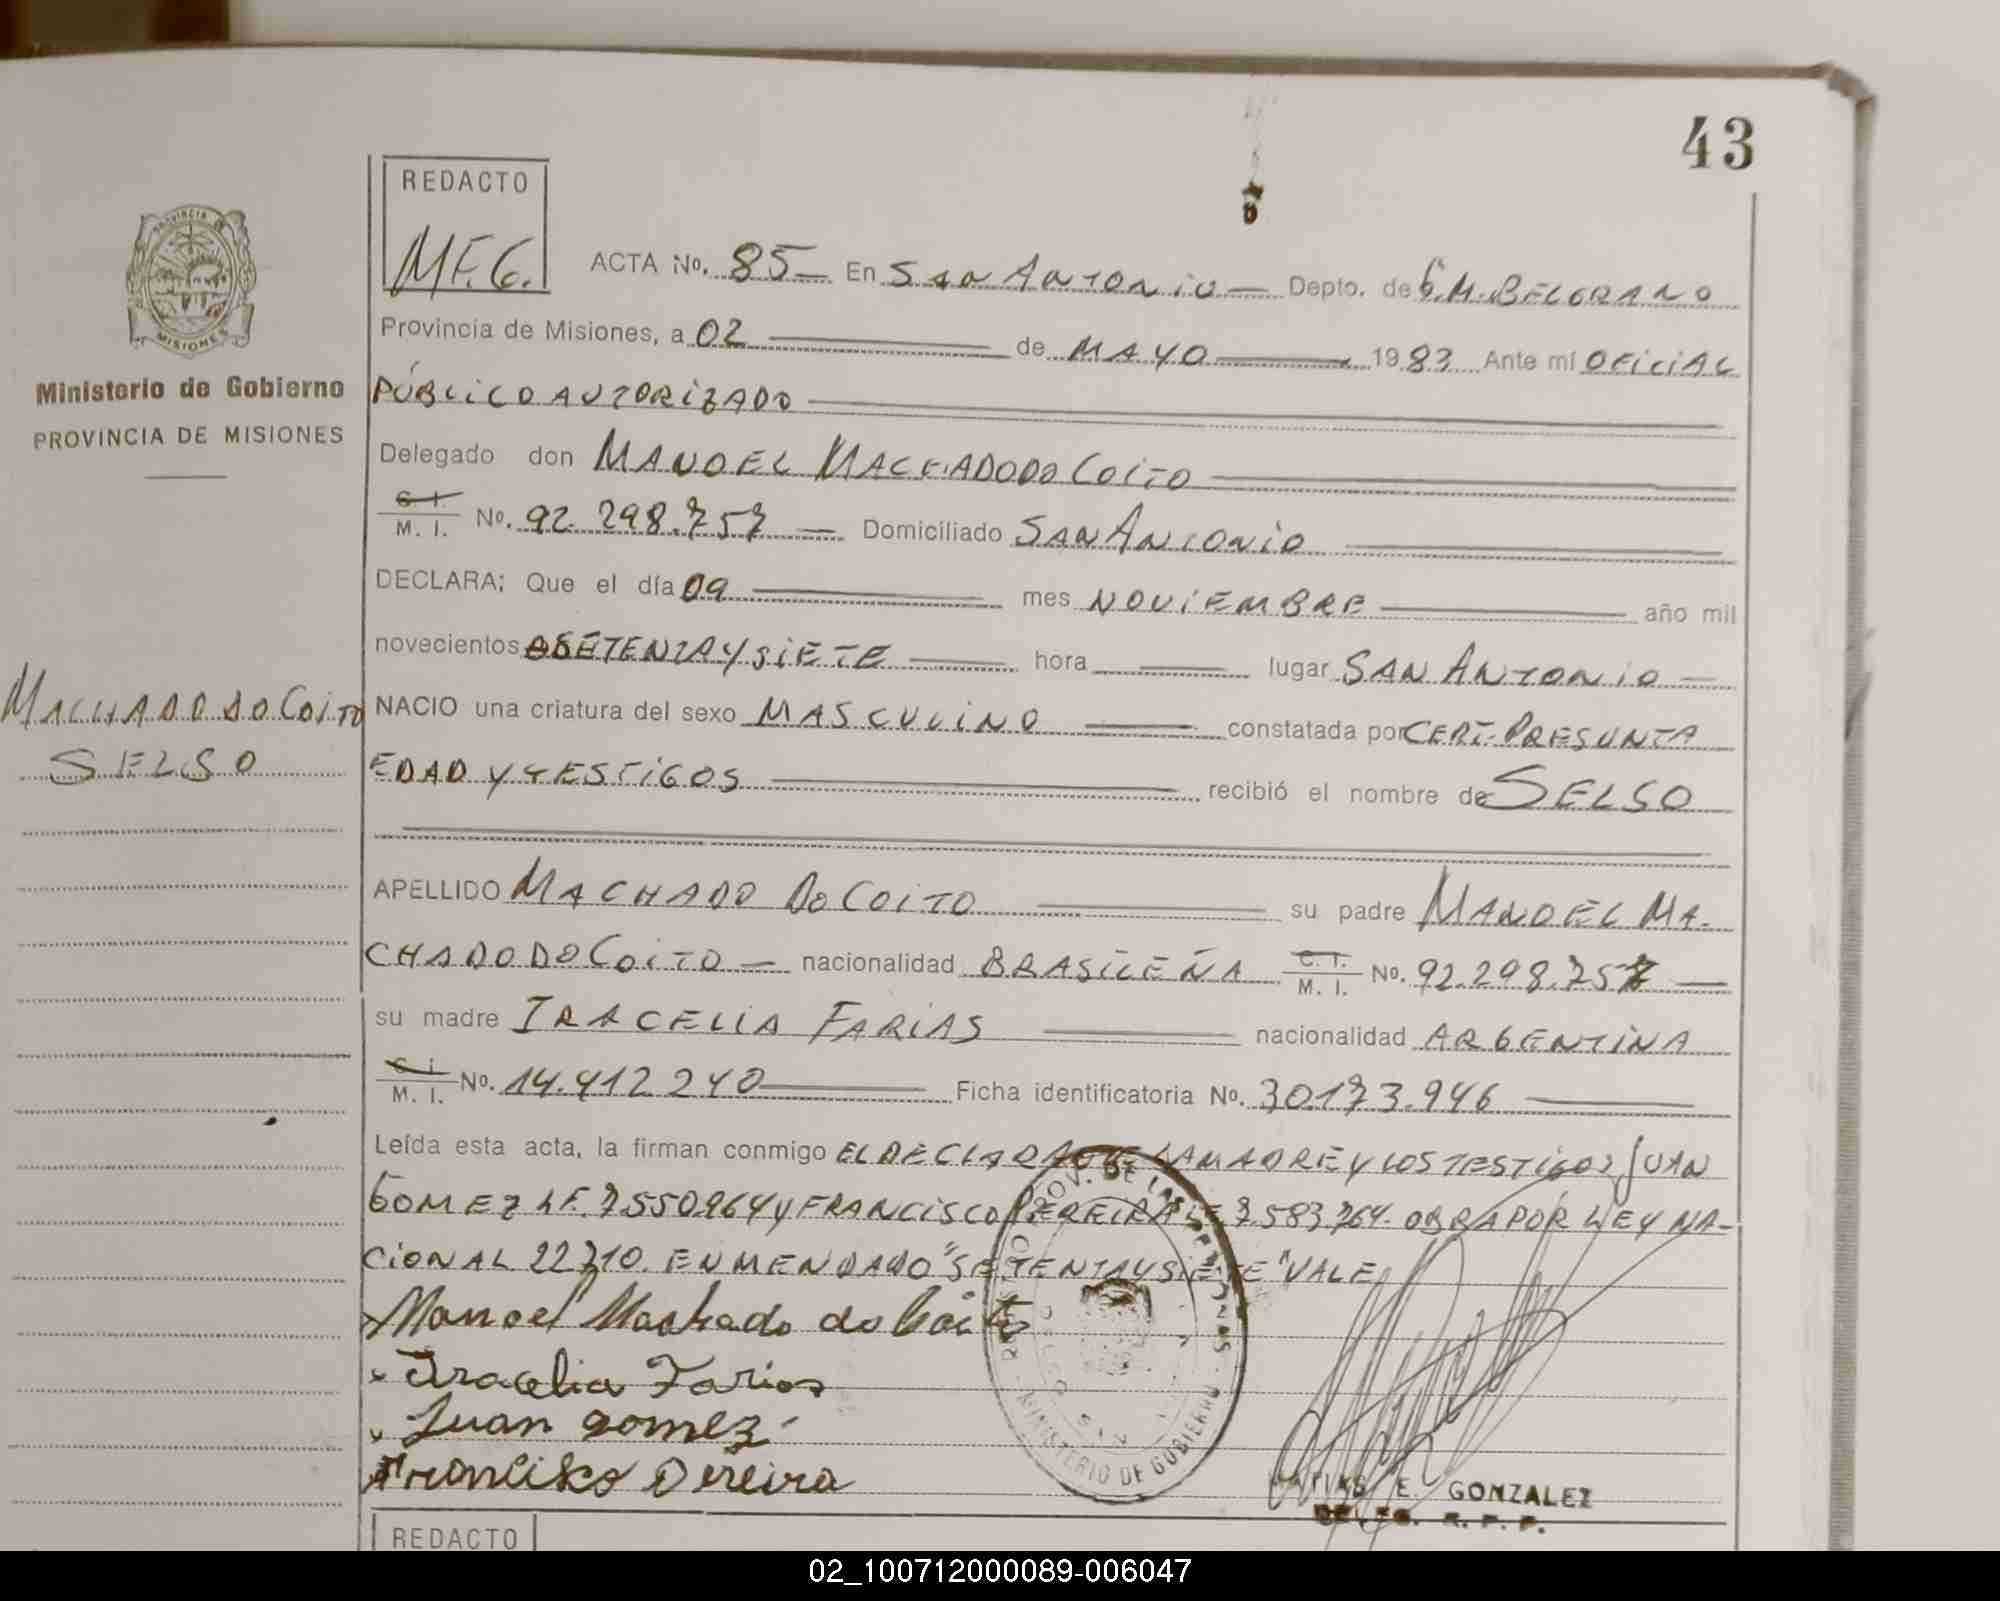 43
REDACTO
MF.G.
PROVINCIA
MISIONES
Ministerio de Gobierno
PROVINCIA DE MISIONES
ACTA No. 85 — En San Antonio — Depto. de G.M. BELGRANO
Provincia de Misiones, a 02 — de MAYO — 1983 Ante mí OFICIAL
PÚBLICO AUTORIZADO —
Delegado don MANOEL MACHADO DO COITO —
C. I. / M. I. No. 92.298.757 — Domiciliado SAN ANTONIO —
DECLARA; Que el día 09 — mes NOVIEMBRE — año mil
novecientos SETENTA Y SIETE — hora — lugar SAN ANTONIO —
MACHADO DO COITO
SELSO
NACIO una criatura del sexo MASCULINO — constatada por CERT. PRESUNTA
EDAD Y TESTIGOS — recibió el nombre de SELSO
APELLIDO MACHADO DO COITO — su padre MANOEL MA-
CHADO DO COITO — nacionalidad BRASILEÑA C. I. / M. I. No. 92.298.757 —
su madre IRACELIA FARIAS — nacionalidad ARGENTINA
C. I. / M. I. No. 14.412.240 — Ficha identificatoria No. 30.173.946 —
Leída esta acta, la firman conmigo EL DECLARANTE LA MADRE Y LOS TESTIGOS JUAN
GOMEZ LE. 7.550.964 Y FRANCISCO PEREIRA LE 7.583.764. OBRA POR LEY NA-
CIONAL 22710. ENMENDADO "SETENTA Y SIETE" VALE
Manoel Machado do Coito
Iracelia Farias
Juan gomez
Francisko Pereira
PROV. DE LAS PERSONAS
MINISTERIO DE GOBIERNO
MATIAS E. GONZALEZ
DELEG. R. P. P.
REDACTO
02_100712000089-006047